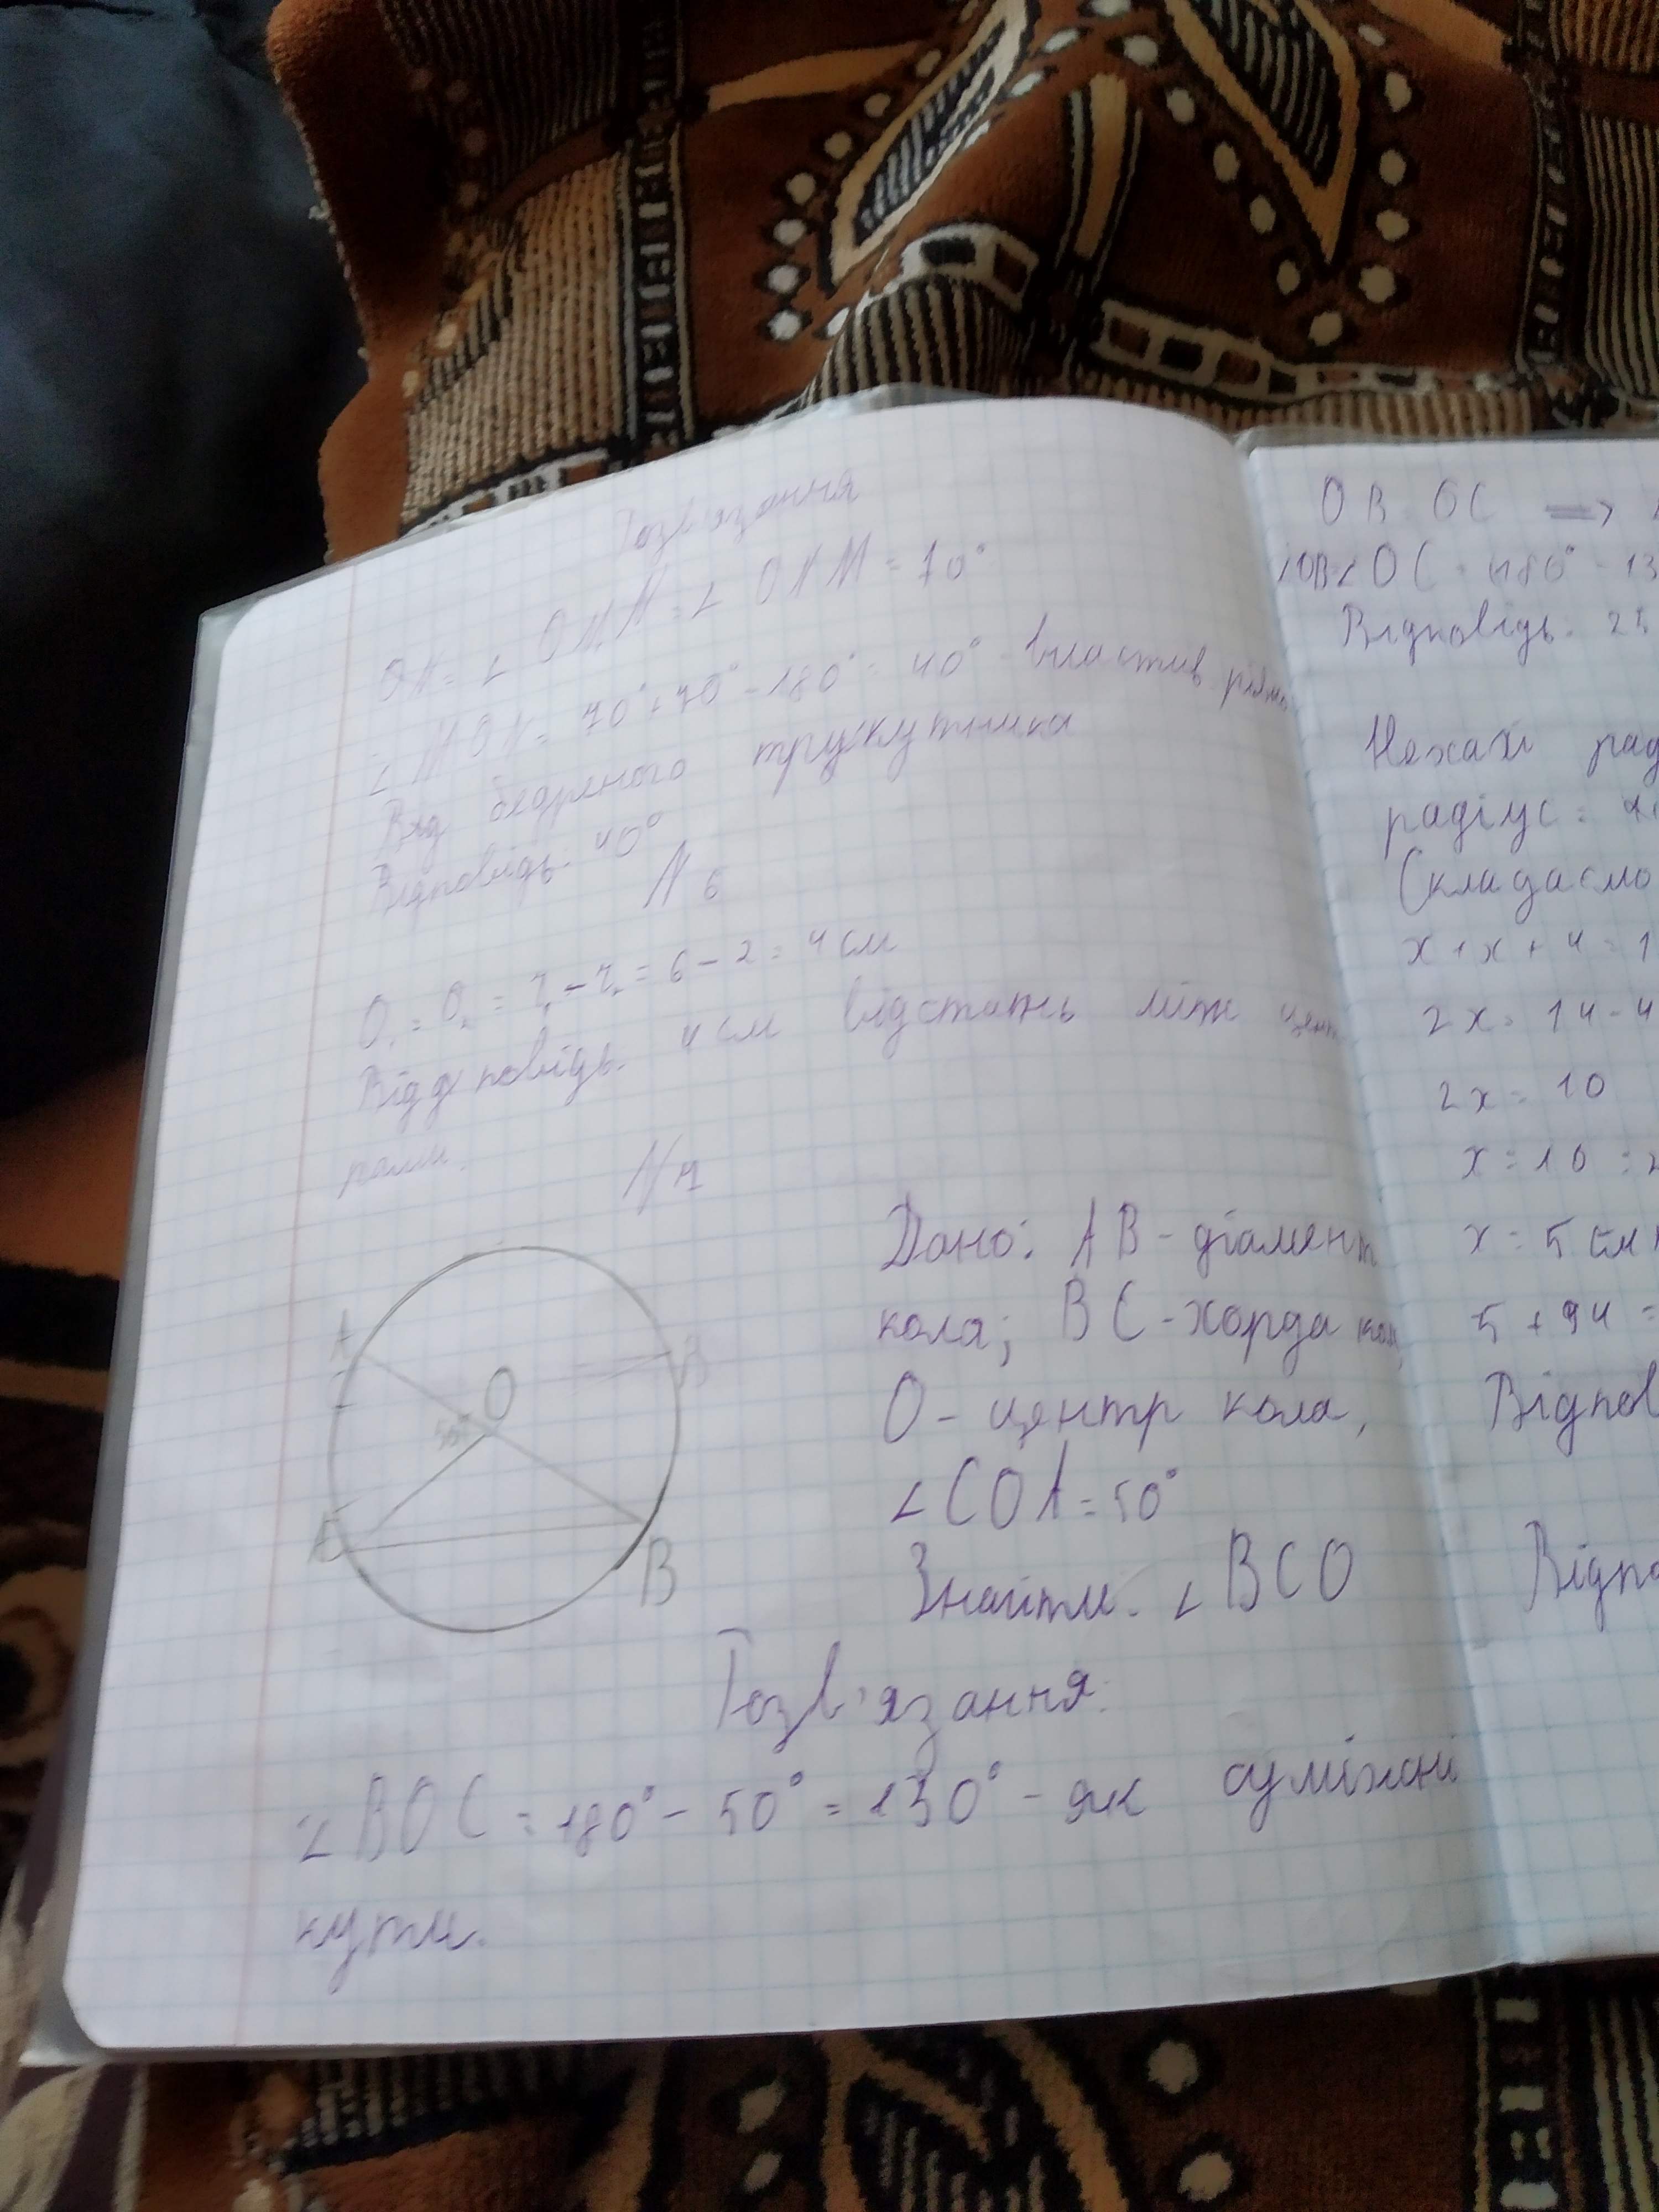 Розв'язання
ОК = ∠ OMN = ∠ ONM = 70°
∠ MON = 70° + 70° - 180° = 40° - властив рівно
бедряного трикутника
Відповідь. 40°
N 6
O₁ = O₂ = r₁ - r₂ = 6 - 2 = 4 см
Віддповідь. 4 см відстань між цент
рами.
N 7
A
B
O
50°
C
B
Дано: AB - діамент
кола; BC - хорда кола,
O - центр кола,
∠COA = 50°
Знайти. ∠ BCO
Розв'язання:
∠ BOC = 180° - 50° = 130° - як суміжні
кути.
OB OC =>
∠OB∠OC = 180° - 13
Відповідь. 25
Нехай рад
радіус =
Складаємо
x + x + 4 = 1
2x = 14 - 4
2x = 10
x = 10 : 2
x = 5 см
5 + 94 =
Відпов
Відпо